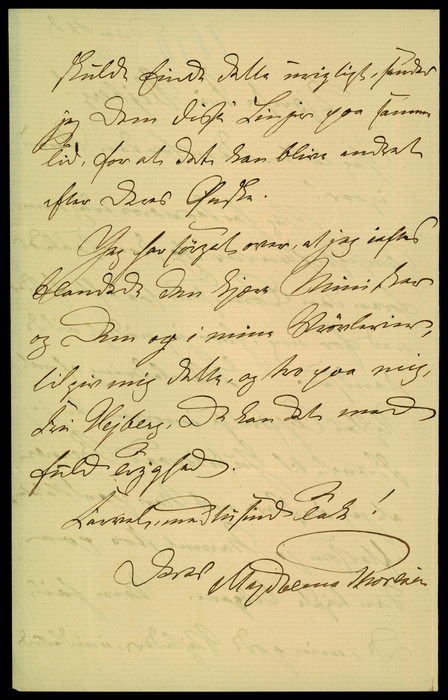 skulde finde dette urigtigt, sender
jeg Dem disse Linjer paa samme
Tid, for at det kan blive andret
efter Deres Ønske.
Jeg har sörget over, at jeg iaftes
blandede den kjere Minister
og Dem op i mine Vrövlerier,
tilgiv mig dette, og tro paa mig,
Fru Hejberg, De kan det med
fuld Tryghed.
Farvel, med tusind Tak!
Deres
Magdalena Thoresen